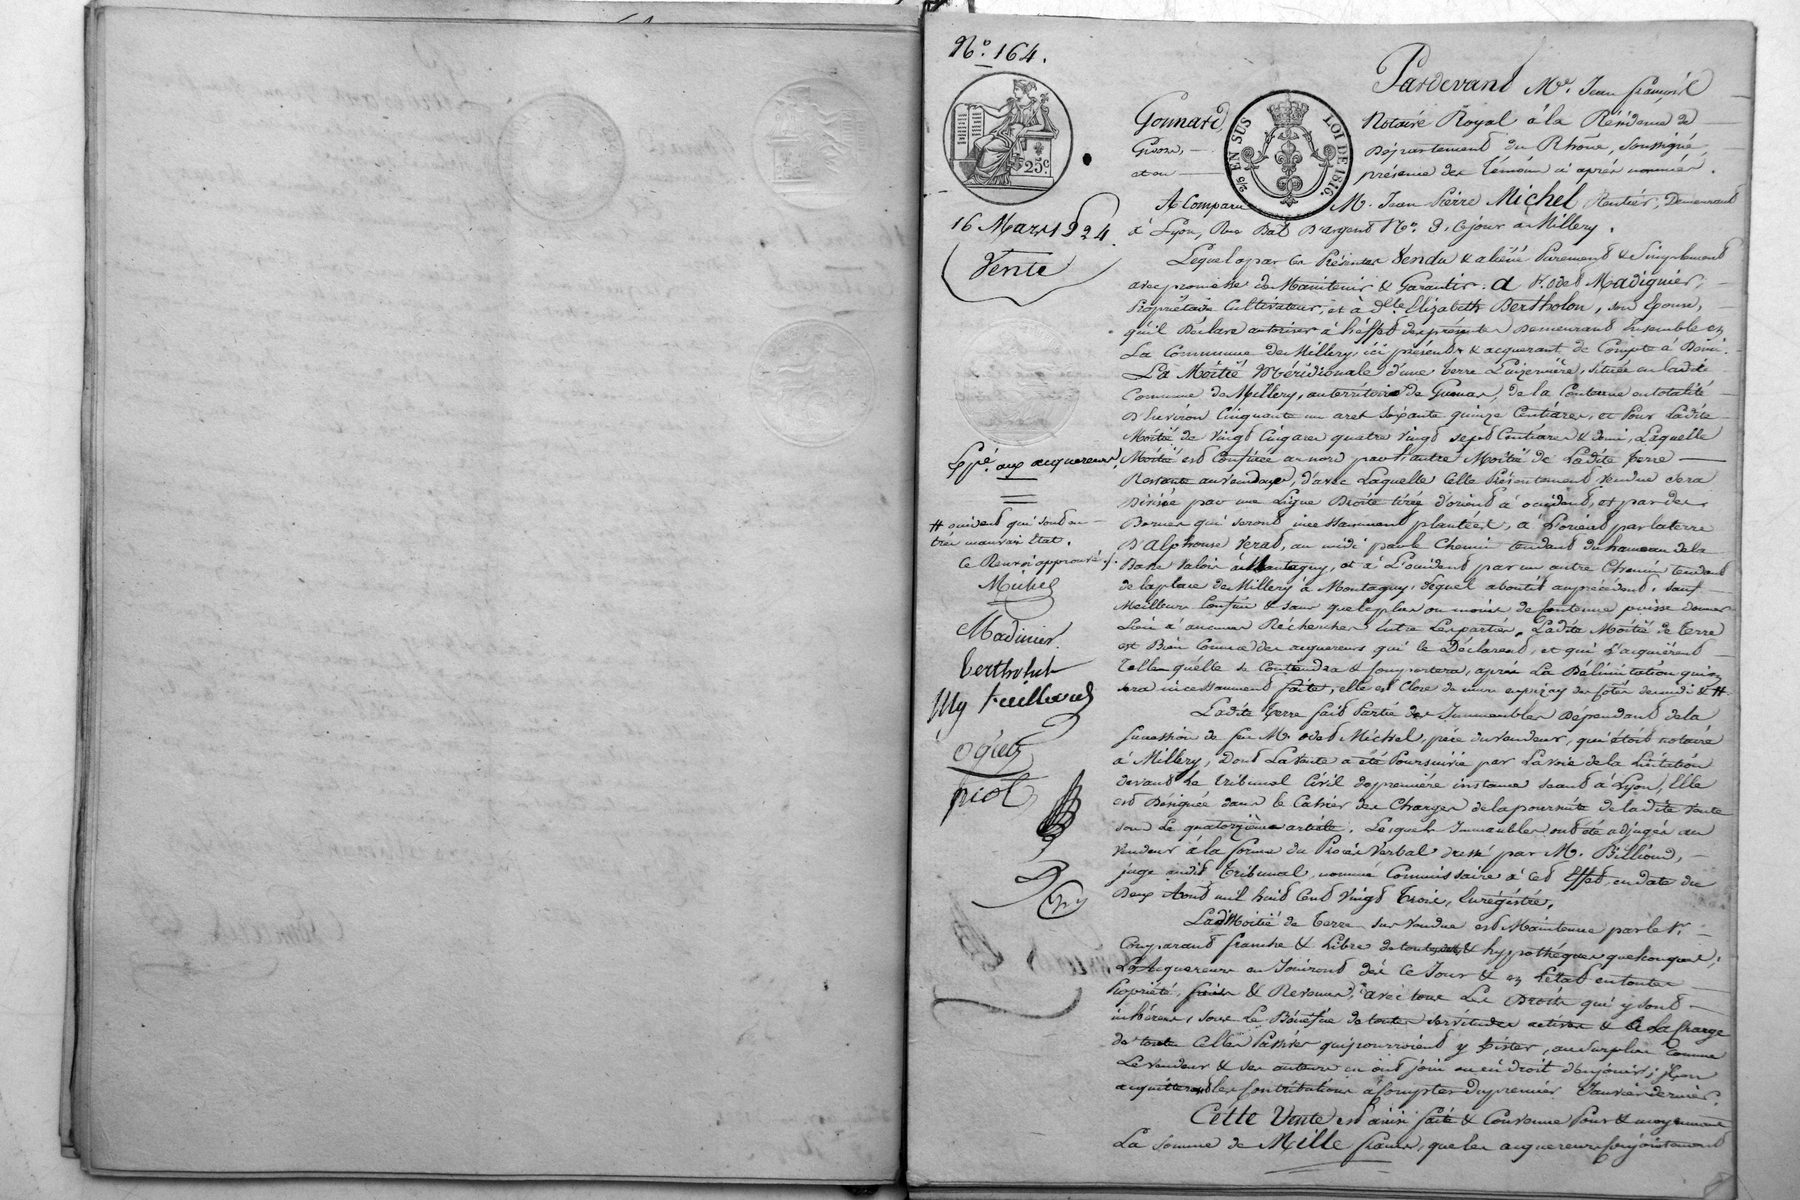 N.° 164.
25.c
2/5 EN SUS
LOI DE 1816.
16 Mars 1824.
Vente
Exp.é aux acquereurs.
# occident qui sont en
très mauvais Etat.
ce Renvoi approuvé
Michel
Madinier
Bertholat
Pardevant M.e Jean françois
Gonnard Notaire Royal à la Résidence de
Givors, Département du Rhône, soussigné,
et en présence des Témoins ci après nommés.
A Comparu M. Jean Pierre Michel Rentier, Demeurant
à Lyon, Rue Bât D'argent N.° 9, ce jour à Millery.
Lequel a par ces Présentes Vendu & aliéné Purement & Simplement
avec promesse de Maintenir & Garantir. à S. Odet Madignier,
Propriétaire Cultivateur, et à d.lle Elizabeth Bertholon, son Epouse,
qu'il Déclare autoriser à l'éffet des présentes Demeurant Ensemble en
La Commune de Millery, ici présents & acquerant de Compte à Demi.
La Moitié Méridionale d'une terre Luizernière, située en ladite
Commune de Millery, au territoire de, de la Contenue en totalité
D'Environ Cinquante un ares soixante quinze Centiares, et Pour Ladite
Moitié de Vingt Cinq ares quatre vingt sept Centiares & demi, Laquelle
Moitié est Confinée au nord par l'autre Moitié de Ladite terre
Restante au vendeur, d'avec Laquelle Celle Présentement Vendue sera
Divisée par une Ligne Droite tirée d'orient à occident, et par des
Bornes qui seront incessamment plantées, à l'orient par la terre
D'Alphonse Verat, au midi par le Chemin tendant du hameau de la
Basse Valois à Montagny, et à L'occident par un autre Chemin tendant
de la place de Millery à Montagny, lequel aboutit au précédent, sauf
Meilleurs Confins & sans que le plus ou moins de contenue puisse donner
Lieu à aucunes Récherches Entre Les parties. Ladite Moitié de terre
est Bien Connue des acquereurs qui le Déclarent, et qui l'acquièrent
telle qu'elle se Contiendra & Comportera, après La Délimitation qui en
sera incessamment faite, elle est Close de murs en pizay des côtés de midi & #
Ladite terre fait Partie des Immeubles Dépendant de la
succession de feu M. Odet Michel, père du vendeur, qui étoit notaire
à Millery, Dont La Vente a été Poursuivie par La voie de la Licitation
devant Le tribunal Civil de première instance séant à Lyon, Elle
est Désignée dans le Cahier des Charges de la poursuite de ladite Vente
sous Le quatorzième article. Lesquels Immeubles ont été adjugés au
Vendeur à la forme du Procès Verbal dressé par M. Billioud,
juge audit Tribunal, nommé Commissaire à Cet Effet, en date du
Deux Aout mil huit Cent Vingt Trois, Enrégistré.
Ladite Moitié de Terre sus Vendue est Maintenue par le S.
Comparant franche & Libre de toutes dettes & hypothéques quelconques;
Les Acquereurs en Jouiront dès Ce Jour & en l'état en toute
Propriété, fruits & Revenus, avec tous Les Droits qui y sont
inhérens, sous Le Bénéfice de toutes servitudes actives & à La Charge
de toutes Celles Passives qui pourroient y Exister, au surplus Comme
Le vendeur & ses auteurs en ont joui ou eu droit d'en jouir; Ils en
acquitteront les Contributions à Compter du premier Janvier dernier.
Cette Vente est ainsi faite & Convenue Pour & moyennant
La somme de Mille francs, que les acquereurs Conjointement